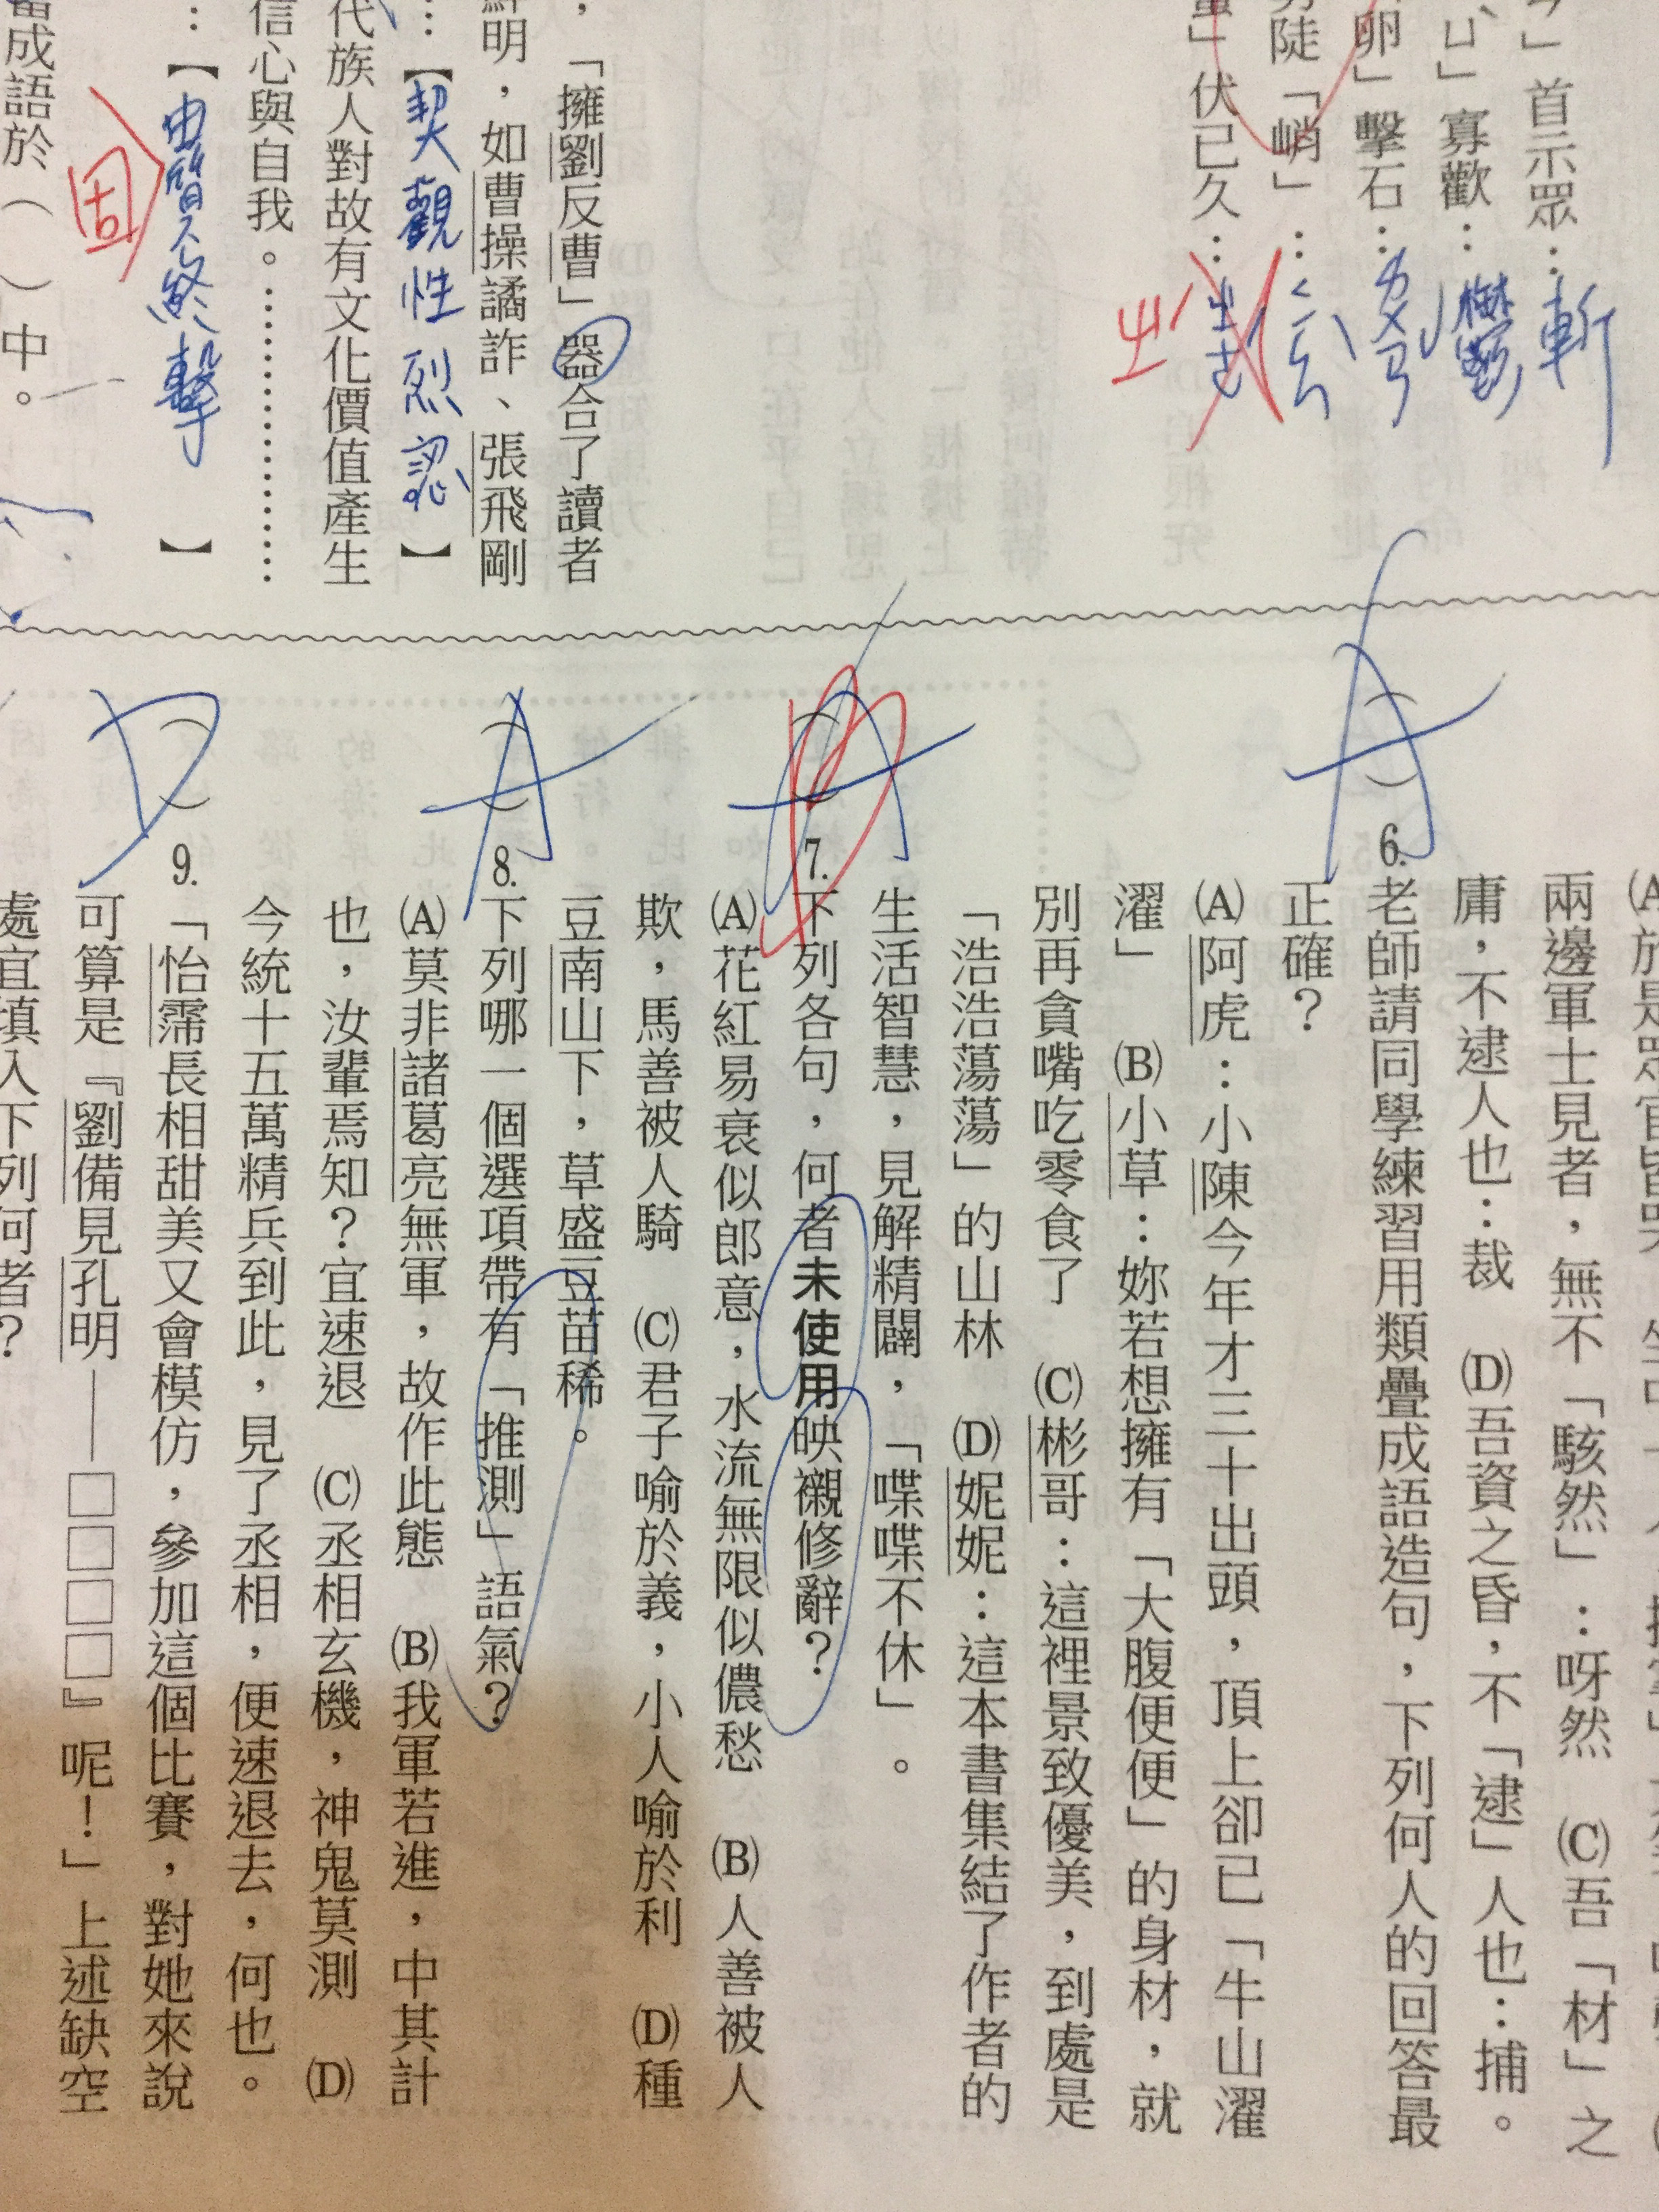 」首示眾：斬
ㄩˋ」寡歡：鬱
卵」擊石：ㄌㄨㄢˇ
陡「峭」：
」伏已久：
，「擁劉反曹」器合了讀者
鮮明，如曹操譎詐、張飛剛
…【契觀性烈認】
代族人對故有文化價值產生
信心與自我。……………
：【　　終擊】
固
成語於（　）中。
兩邊軍士見者，無不「駭然」：呀然　(C)吾「材」之
庸，不逮人也：裁　(D)吾資之昏，不「逮」人也：捕。
A
6.老師請同學練習用類疊成語造句，下列何人的回答最
正確？
(A)阿虎：小陳今年才三十出頭，頂上卻已「牛山濯
濯」　(B)小草：妳若想擁有「大腹便便」的身材，就
別再貪嘴吃零食了　(C)彬哥：這裡景致優美，到處是
「浩浩蕩蕩」的山林　(D)妮妮：這本書集結了作者的
生活智慧，見解精闢，「喋喋不休」。
A
7.下列各句，何者未使用映襯修辭？
(A)花紅易衰似郎意，水流無限似儂愁　(B)人善被人
欺，馬善被人騎　(C)君子喻於義，小人喻於利　(D)種
豆南山下，草盛豆苗稀。
A
8.下列哪一個選項帶有「推測」語氣？
(A)莫非諸葛亮無軍，故作此態　(B)我軍若進，中其計
也，汝輩焉知？宜速退　(C)丞相玄機，神鬼莫測　(D)
今統十五萬精兵到此，見了丞相，便速退去，何也。
D
9.「怡霈長相甜美又會模仿，參加這個比賽，對她來說
可算是『劉備見孔明——□□□□』呢！」上述缺空
處宜填入下列何者？